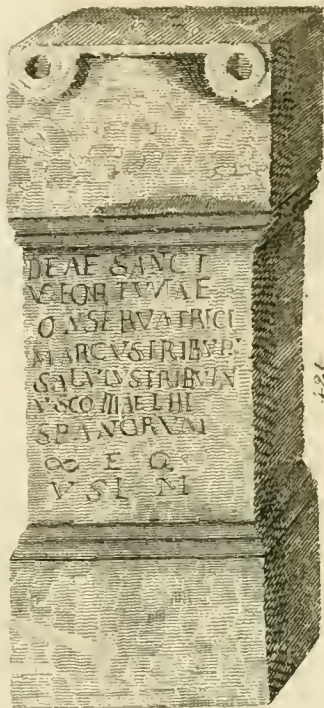 DEAE SANCT
FORTVNAE
ONSERVATRICI
MARCVS
SALVIVSTRIBVN
VSCOHIAELHI
SPANORVM
∞ E Q
V S L M